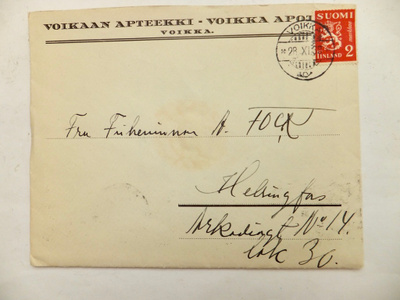 VOIKAAN APTEEKKI - VOIKKA APOT
VOIKKA.
SUOMI
FINLAND 2
VOIKK
28.XI.3
Fru Friherinnan A. FOCK
Helsingfors
Arkadiagt No 14.
lok 30.